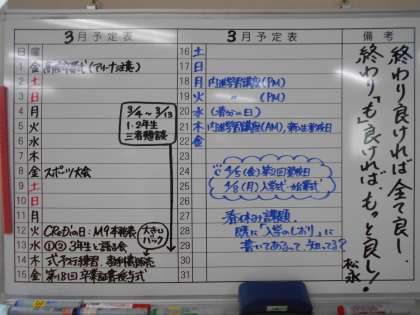 3月予定表
日 曜
1 金
2 土
3 日
4 月
5 火
6 水
7 木
8 金 スポーツ大会
9 土
10 日
11 月
12 火
13 水 ①② 3年生と語る会
14 木 式予行練習、
15 金 第18回卒業証書授与式
3/4〜3/13
1・2年生
三者懇談
大きい
パーク
3月予定表
16 土
17 日
18 月 内進学習講座(PM)
19 火 〃 (PM)
20 水 (春分の日)
21 木 内進学習講座(AM)、
22 金
23 土
24 日
25 月
26 火
27 水
28 木
29 金
30 土
31 日
4/5(金) 第2回登校日
4/8(月) 入学式・始業式
春休み課題、
既に「入学のしおり」に
書いてあるって、知ってる?
備考
終わり良ければ全て良し、
終わり「も」良ければ、もっと良し!
松永